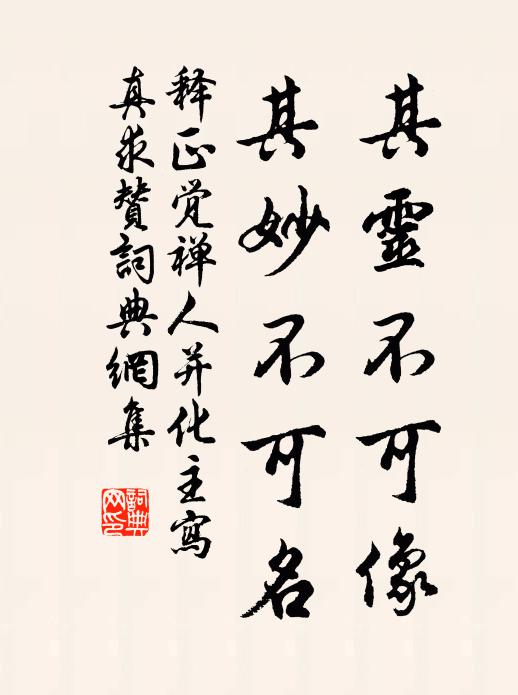 其靈不可像
其妙不可名
释正觉禅人并化主寫
真求贊詞典網集
詞典网印